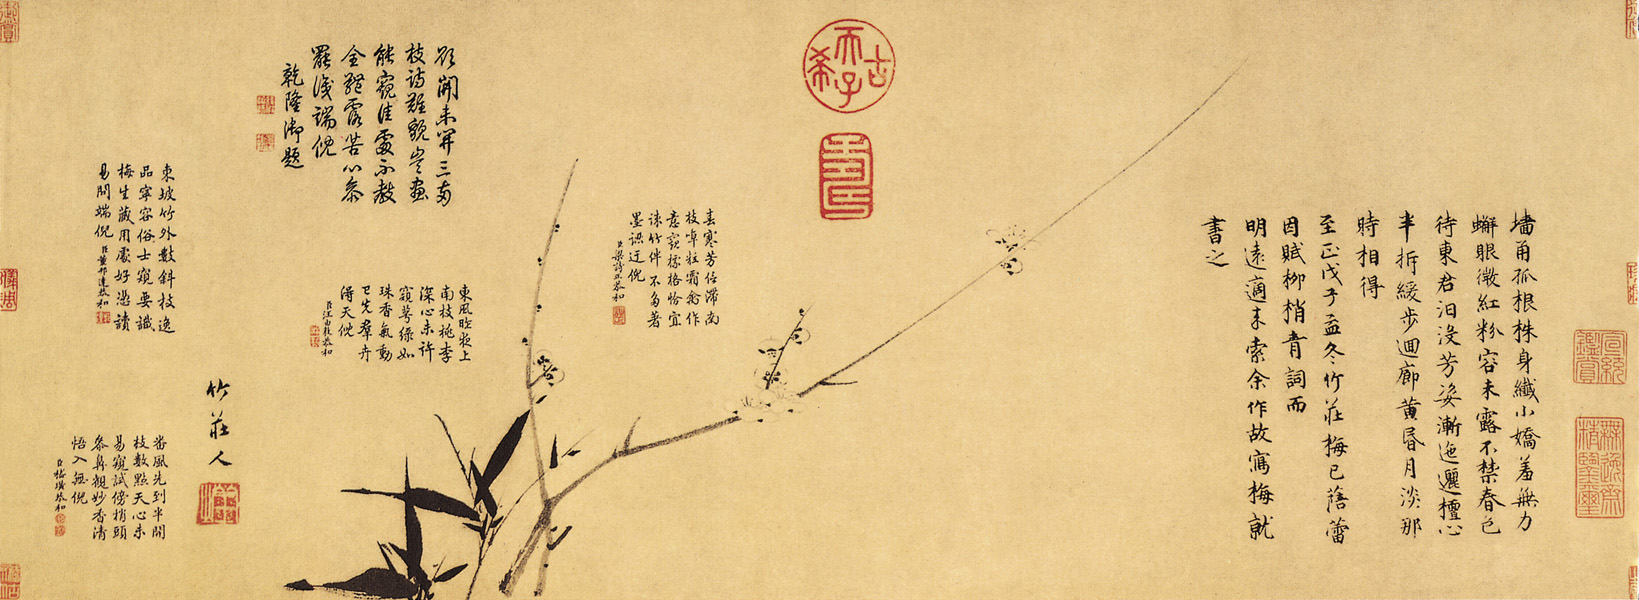 墻角孤根株身纖小嬌羞無力
蠏眼微紅粉容未露不禁春色
待東君汨没芳姿漸迤邐檀心
半拆緩步迴廊黄昏月淡那
時相得
至正戊子孟冬竹莊梅已蓓蕾
因賦柳梢青詞而
明遠適来索余作故寫梅就
書之
宣統鑑賞
無逸齋精鑒璽
古希天子
壽
春寒芳信滯南
枝啅粒霜禽作
意窺標格恰宜
疎竹伴不勞著
墨認迂倪
臣梁詩正恭和
欲開未開三兩
枝詩難貌豈畫
能窺佳處不教
全體露苦心參
罷淺端倪
乾隆御題
東風昨夜上
南枝桃李
深心未許
窺萼緑如
珠香氣動
已先羣卉
得天倪
臣汪由敦恭和
東坡竹外數斜枝逸
品寧容俗士窺要識
梅生藏用處好憑讀
易問端倪臣董邦達恭和
竹莊人
番風先到半開
枝數點天心未
易窺試傍梢頭
參鼻觀妙香清
悟入無倪
臣嵇璜恭和